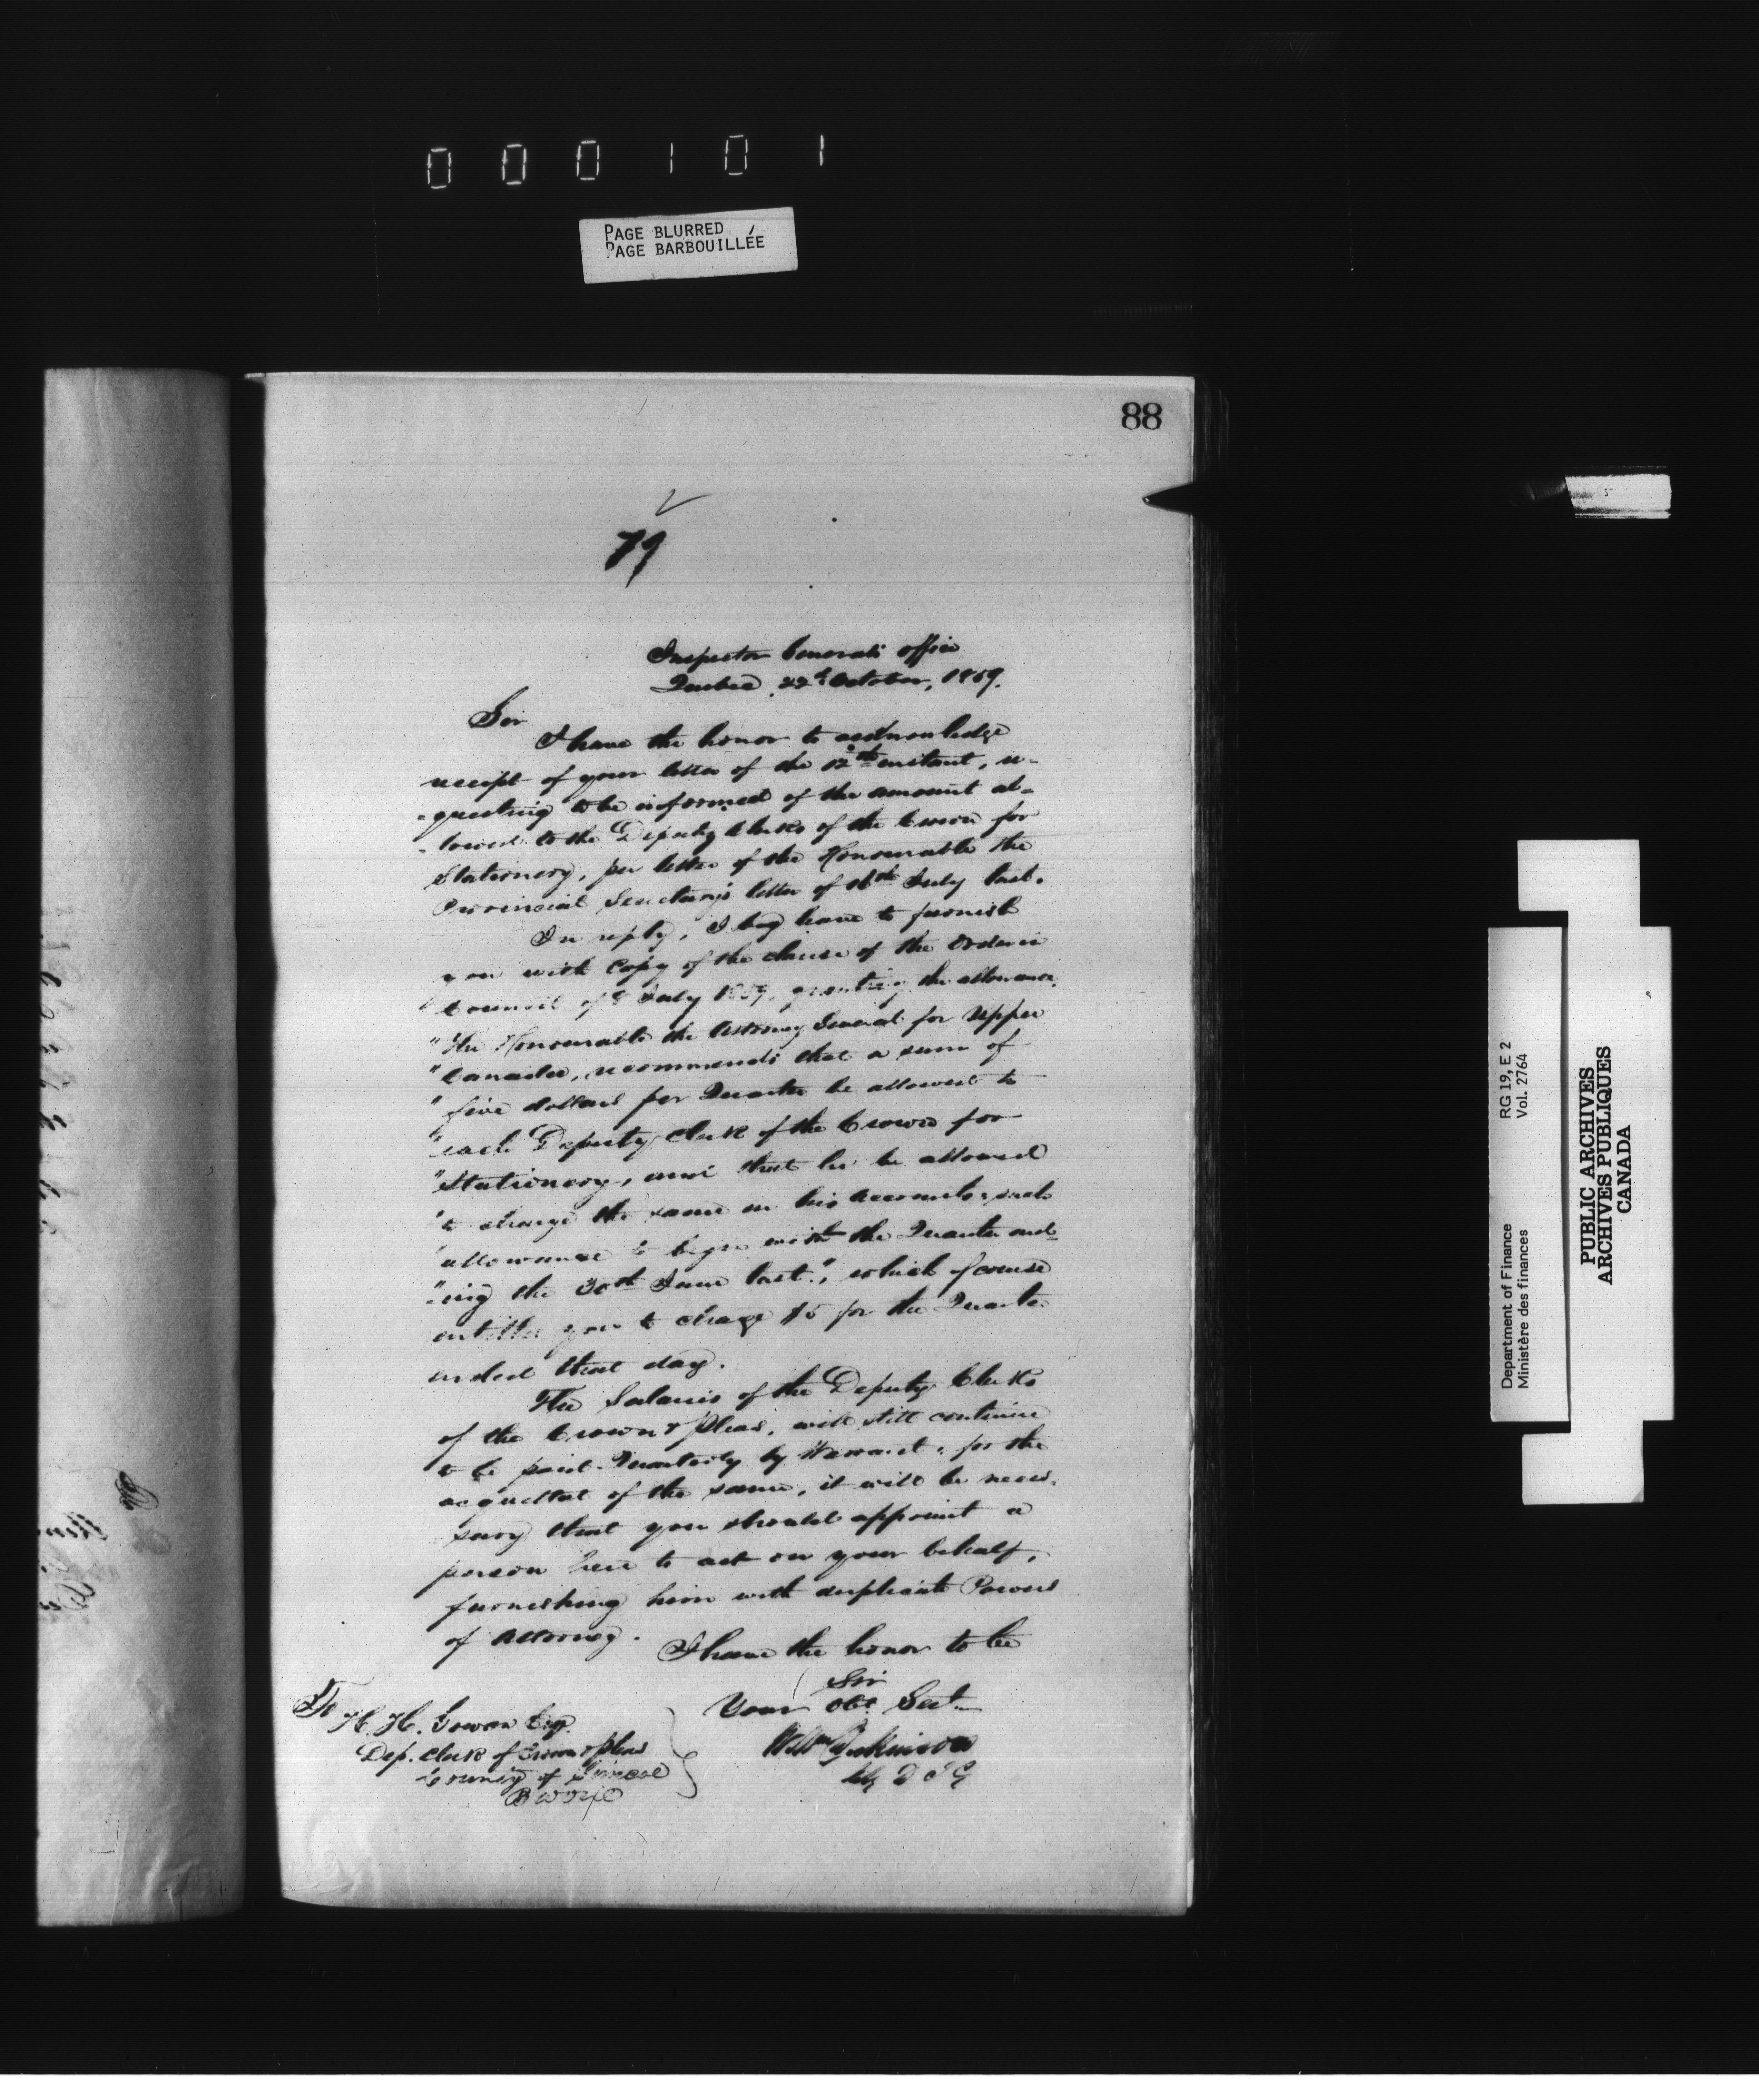 000101
PAGE BLURRED
PAGE BARBOUILLÉE
88
79
Inspector Generals office
Quebec, 22d October, 1859.
Sir
I have the honor to acknowledge
receipt of your letter of the 12th instant, re-
-questing to be informed of the amount al-
-lowed to the Deputy Clerks of the Crown for
Stationery, per letter of the Honourable the
Provincial Secretary's letter of 16th July last.
In reply, I beg leave to furnish
you with Copy of the clause of the Order in
Council of 8 July 1859, granting the allowance,
"The Honourable the Attorney General for Upper
"Canada, recommends that a sum of
"five dollars per Quarter be allowed to
"each Deputy Clerk of the Crown for
"Stationery, and that he be allowed
"to charge the same in his accounts, such
"allowance to begin with the Quarter end-
"-ing the 30th June last.", which of course
entitles you to charge $5 for the Quarter
ended that day.
The Salaries of the Deputy Clerks
of the Crown & Pleas, will still continue
to be paid Quarterly by Warrant, for the
acquittal of the same, it will be neces-
sary that you should appoint a
person here to act on your behalf,
furnishing him with duplicate Powers
of Attorney.
I have the honor to be
Sir
Your Obt. Sert.
Wm Dickinson
Actg D I G
To
H. H. Gowan Esq.
Dep. Clerk of Crown & Pleas
County of Simcoe
Barrie
Department of Finance RG 19, E 2
Ministère des finances Vol. 2764
PUBLIC ARCHIVES
ARCHIVES PUBLIQUES
CANADA